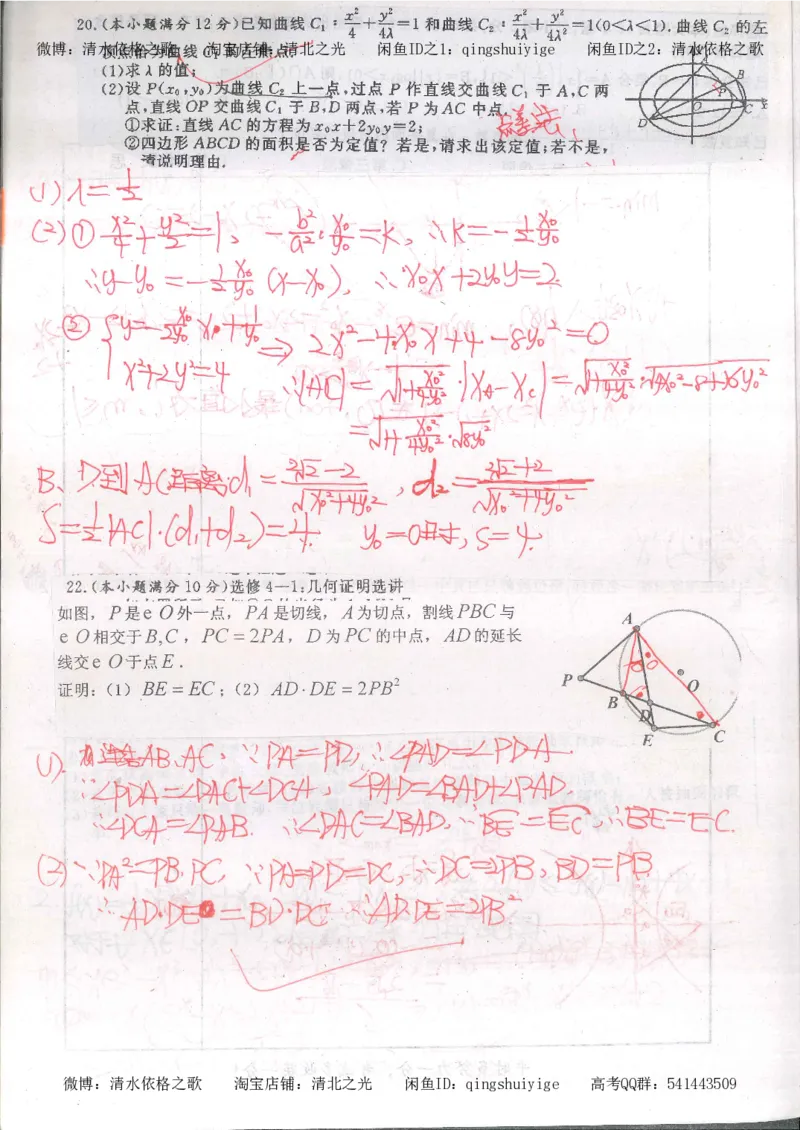 20.(本小题满分12分)已知曲线C₁:x²/4+y²/4λ=1和曲线C₂:x²/4λ+y²/4λ²=1(0<λ<1).曲线C₂的左
微博:清水依格之歌 淘宝店铺:清北之光 闲鱼ID之1:qingshuiyige 闲鱼ID之2:清水依格之歌
顶点恰为曲线C₁的左焦点.
(1)求λ的值;
(2)设P(x₀,y₀)为曲线C₂上一点,过点P作直线交曲线C₁于A,C两
点,直线OP交曲线C₁于B,D两点,若P为AC中点,
①求证:直线AC的方程为x₀x+2y₀y=2;
②四边形ABCD的面积是否为定值?若是,请求出该定值;若不是,
请说明理由.
A
B
P
O
C
x
D
(1) λ=1/2
(2)① x²/4+y²/2=1, -b²/a²·x₀/y₀=k, ∴k=-1/2 x₀/y₀
∴y-y₀=-1/2 x₀/y₀ (x-x₀), ∴x₀x+2y₀y=2
② {y=-x₀/2y₀ x+1/y₀
x²+2y²=4 ⇒ 2x²-4x₀x+4-8y₀²=0
∴|AC|=√(1+x₀²/4y₀²)·|x_A-x_C|=√(1+x₀²/4y₀²)·√(4x₀²-8+16y₀²)
=√(1+x₀²/4y₀²)·√(8y₀²)
B、D到AC距离d₁=(2√2-2)/√(x₀²+4y₀²), d₂=(2√2+2)/√(x₀²+4y₀²)
S=1/2|AC|·(d₁+d₂)=4. y₀=0时,S=4.
22.(本小题满分10分)选修4—1:几何证明选讲
如图,P是e O外一点,PA是切线,A为切点,割线PBC与
e O相交于B,C,PC=2PA,D为PC的中点,AD的延长
线交e O于点E.
证明:(1) BE=EC;(2) AD·DE=2PB²
A
P
O
B
D
E
C
(1). 连结AB、AC, ∵PA=PD, ∴∠PAD=∠PDA.
∵∠PDA=∠DAC+∠DCA, ∠PAD=∠BAD+∠PAB,
∵∠DCA=∠PAB. ∴∠DAC=∠BAD, ∴BE=EC, ∴BE=EC.
(2) ∵PA²=PB·PC, ∵PA=PD=DC, ∴DC=2PB, BD=PB
∵AD·DE=BD·DC ∴AD·DE=2PB²
微博:清水依格之歌 淘宝店铺:清北之光 闲鱼ID:qingshuiyige 高考QQ群:541443509